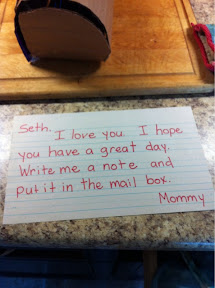 Seth,
I love you. I hope
you have a great day.
Write me a note and
put it in the mail box.
Mommy